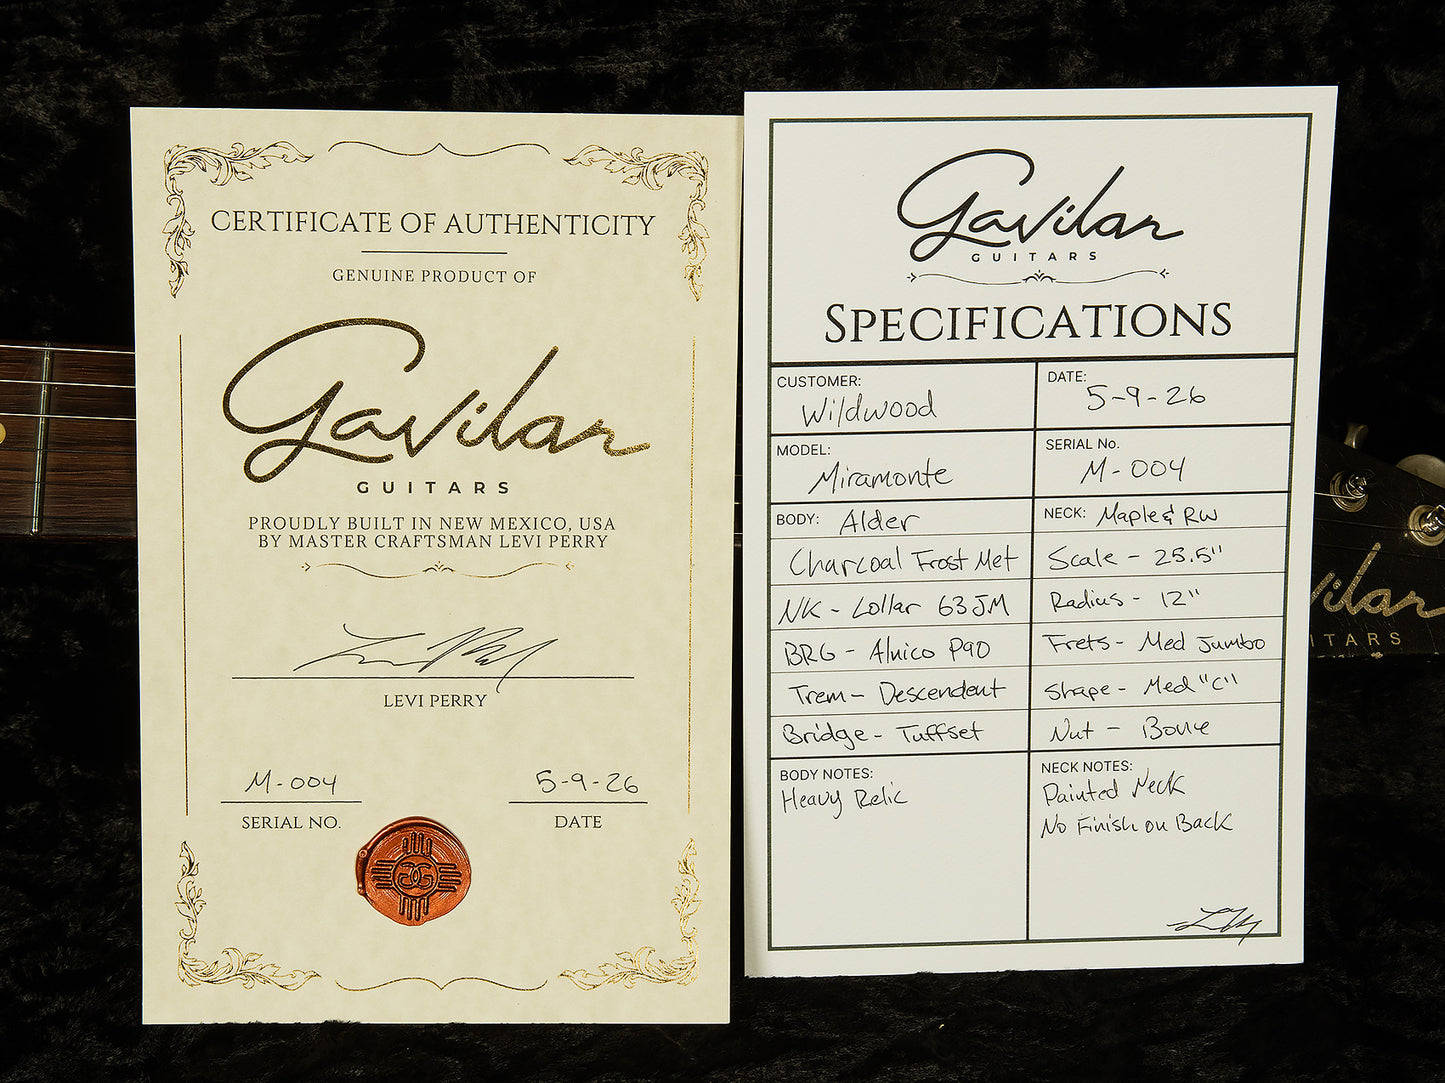 CERTIFICATE OF AUTHENTICITY
GENUINE PRODUCT OF
Gavilan
GUITARS
PROUDLY BUILT IN NEW MEXICO, USA
BY MASTER CRAFTSMAN LEVI PERRY
LEVI PERRY
M-004
SERIAL NO.
5-9-26
DATE
GG
Gavilan
GUITARS
SPECIFICATIONS
CUSTOMER:
Wildwood
DATE:
5-9-26
MODEL:
Miramonte
SERIAL No.
M-004
BODY: Alder
Charcoal Frost Met
NK - Lollar 63 JM
BRG - Alnico P90
Trem - Descendent
Bridge - Tuffset
NECK: Maple & RW
Scale - 25.5"
Radius - 12"
Frets - Med Jumbo
Shape - Med "C"
Nut - Bone
BODY NOTES:
Heavy Relic
NECK NOTES:
Painted Neck
No Finish on Back
vilan
ITARS